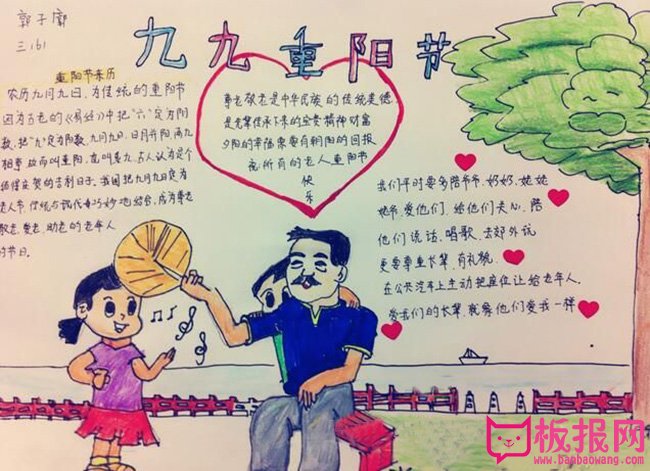 郭子廓
三(6)
九九重阳节
重阳节来历
农历九月九日，为传统的重阳节
因为古老的《易经》中把"六"定为阴
数，把"九"定为阳数，九月九日，日月并阳，两九
相重，故而叫重阳，也叫重九，古人认为是个
值得庆贺的吉利日子。我国把九月九日定为
老人节，传统与现代巧妙地结合，成为尊老
敬老、爱老、助老的老年人
的节日。
尊老敬老是中华民族的传统美德
是先辈传承下来的宝贵精神财富
夕阳的幸福需要有朝阳的回报
祝所有的老人重阳节
快
乐
我们平时要多陪爷爷、奶奶、姥姥
姥爷，爱他们，给他们关心，陪
他们说话、唱歌、去郊外玩
更要尊重长辈，有礼貌
在公共汽车上主动把座位让给老年人。
爱我们的长辈，就像他们爱我一样
板报网
www.banbaowang.com